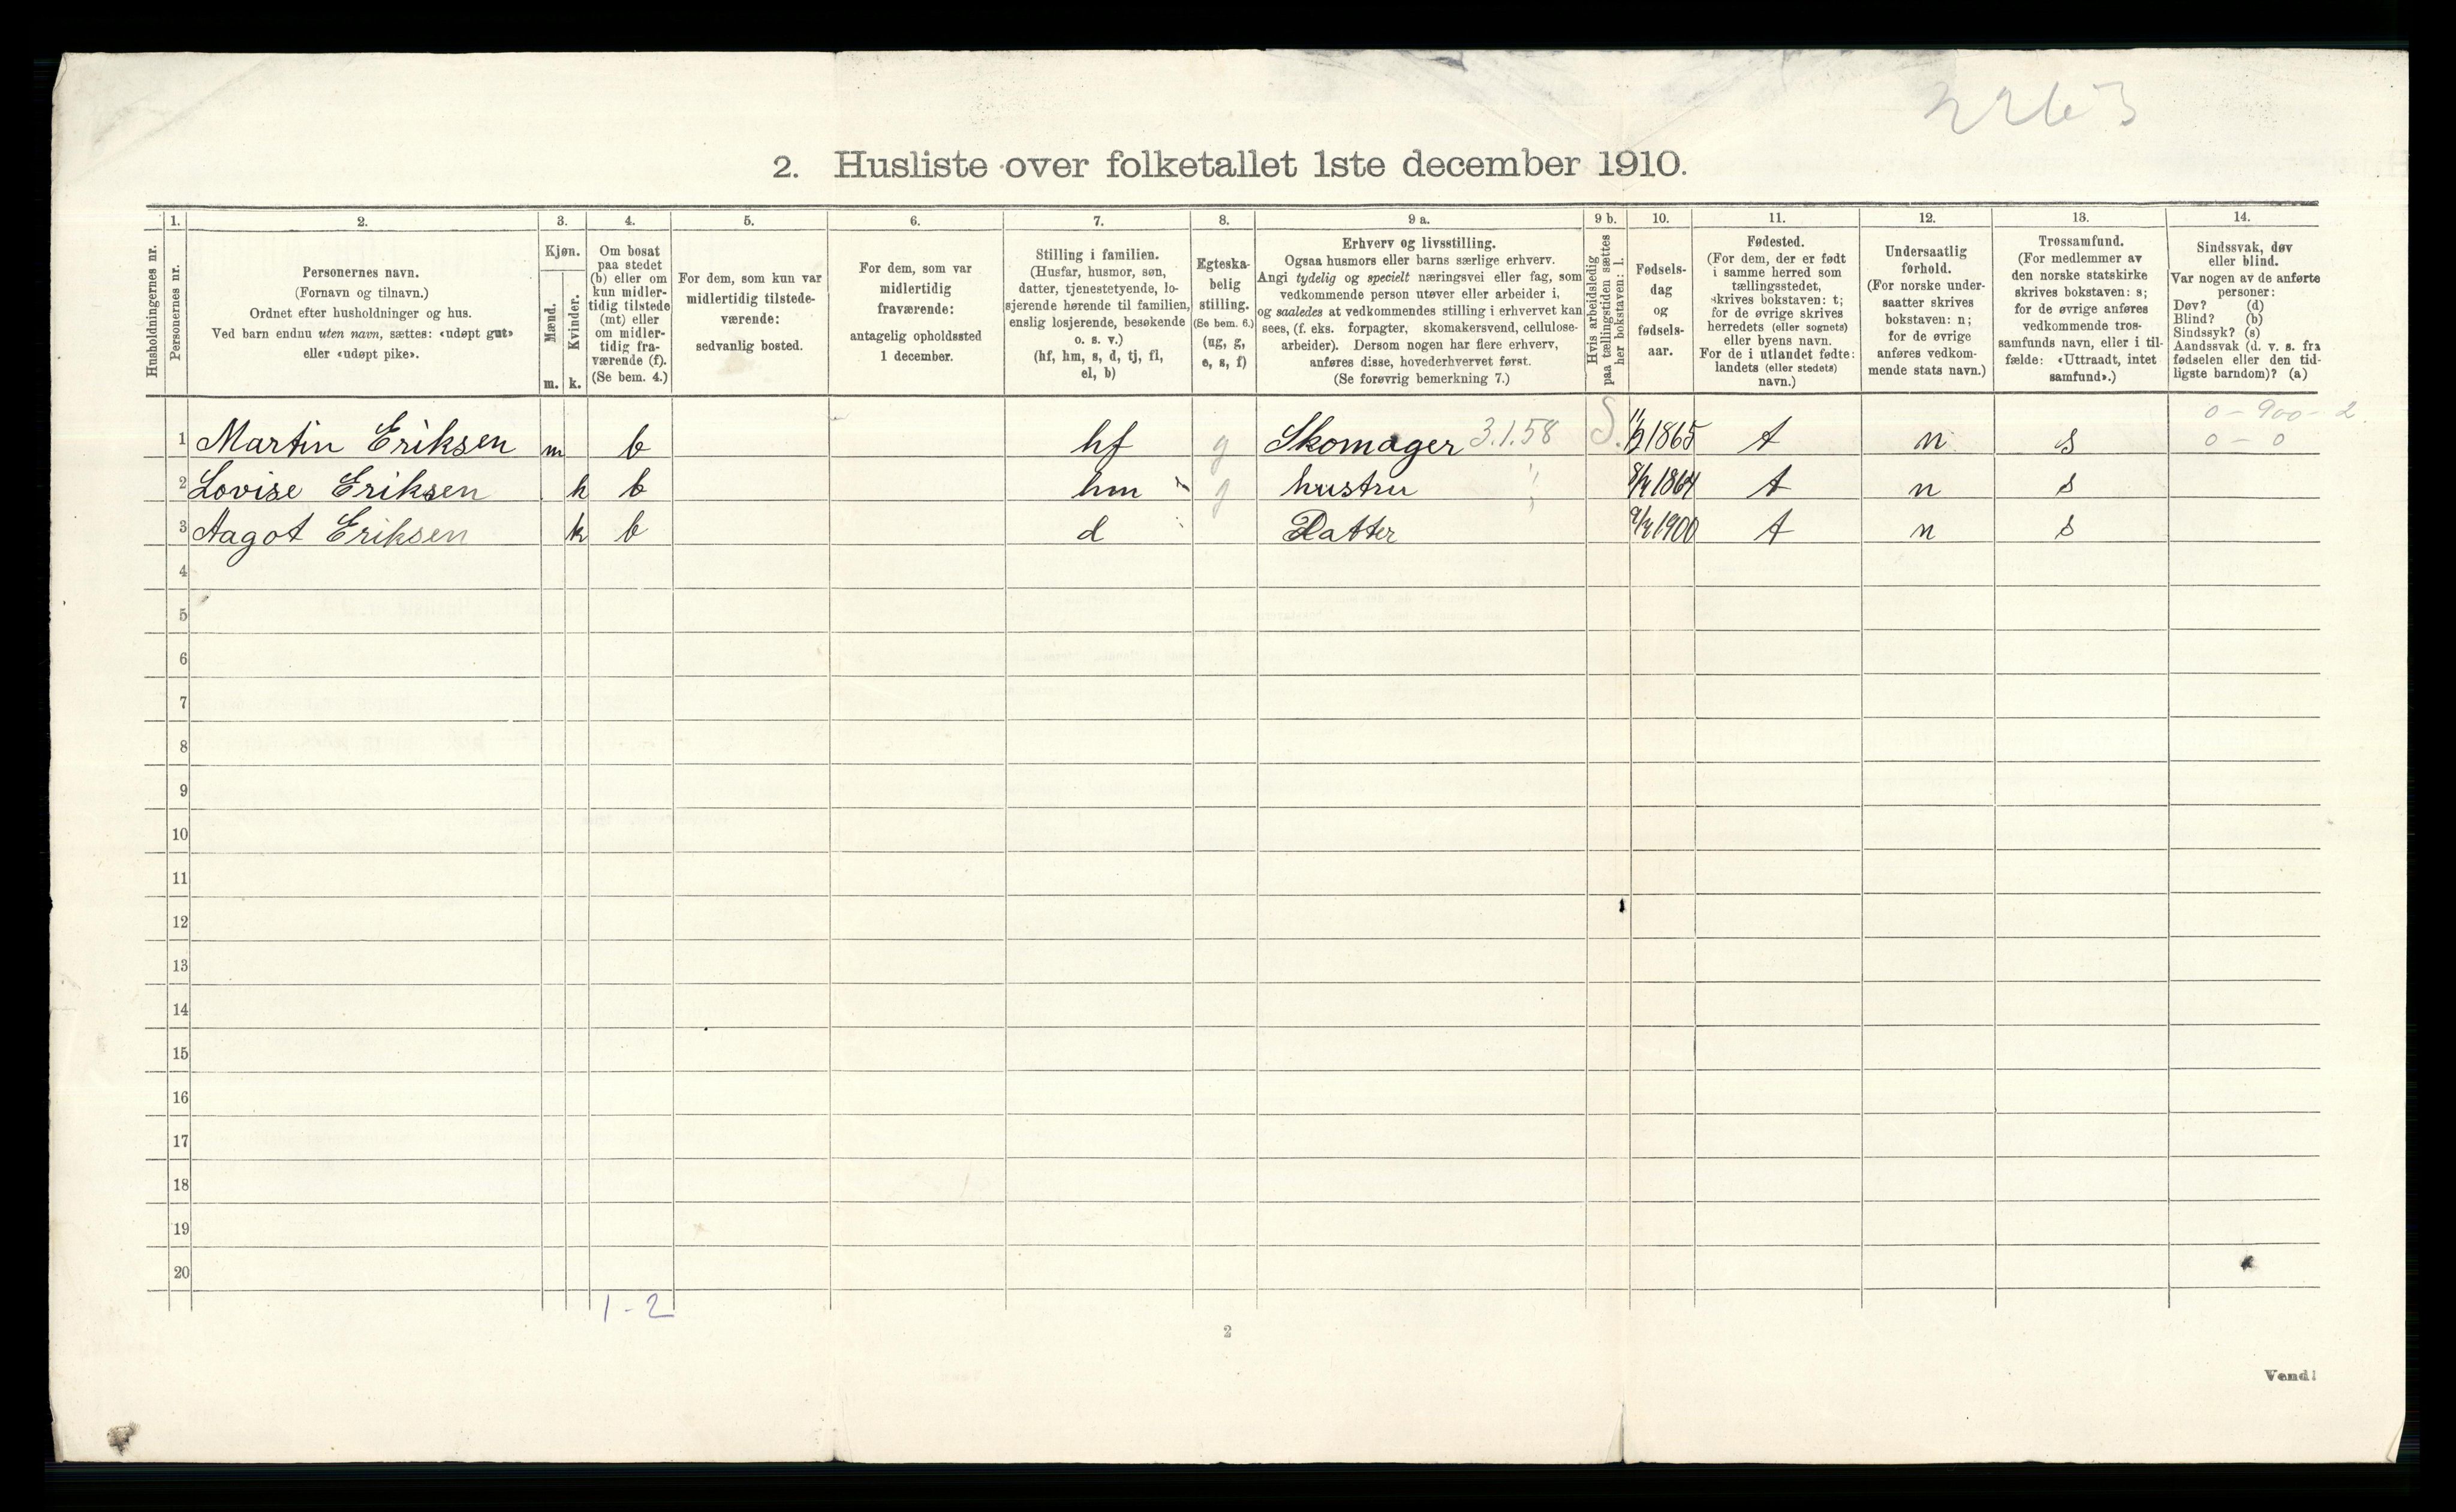 2263
2. Husliste over folketallet 1ste december 1910.
Husholdningernes nr.
1.
Personernes nr.
2.
Personernes navn.
(Fornavn og tilnavn.)
Ordnet efter husholdninger og hus.
Ved barn endnu uten navn, sættes: «udøpt gut»
eller «udøpt pike».
3.
Kjøn.
Mænd.
Kvinder.
m. k.
4.
Om bosat
paa stedet
(b) eller om
kun midler-
tidig tilstede
(mt) eller
om midler-
tidig fra-
værende (f).
(Se bem. 4.)
5.
For dem, som kun var
midlertidig tilstede-
værende:
sedvanlig bosted.
6.
For dem, som var
midlertidig
fraværende:
antagelig opholdssted
1 december.
7.
Stilling i familien.
(Husfar, husmor, søn,
datter, tjenestetyende, lo-
sjerende hørende til familien,
enslig losjerende, besøkende
o. s. v.)
(hf, hm, s, d, tj, fl,
el, b)
8.
Egteska-
belig
stilling.
(Se bem. 6.)
(ug, g,
e, s, f)
9 a.
Erhverv og livsstilling.
Ogsaa husmors eller barns særlige erhverv.
Angi tydelig og specielt næringsvei eller fag, som
vedkommende person utøver eller arbeider i,
og saaledes at vedkommendes stilling i erhvervet kan
sees, (f. eks. forpagter, skomakersvend, cellulose-
arbeider). Dersom nogen har flere erhverv,
anføres disse, hovederhvervet først.
(Se forøvrig bemerkning 7.)
9 b.
Hvis arbeidsledig
paa tællingstiden sættes
her bokstaven: l.
10.
Fødsels-
dag
og
fødsels-
aar.
11.
Fødested.
(For dem, der er født
i samme herred som
tællingsstedet,
skrives bokstaven: t;
for de øvrige skrives
herredets (eller sognets)
eller byens navn.
For de i utlandet fødte:
landets (eller stedets)
navn.)
12.
Undersaatlig
forhold.
(For norske under-
saatter skrives
bokstaven: n;
for de øvrige
anføres vedkom-
mende stats navn.)
13.
Trossamfund.
(For medlemmer av
den norske statskirke
skrives bokstaven: s;
for de øvrige anføres
vedkommende tros-
samfunds navn, eller i til-
fælde: «Uttraadt, intet
samfund».)
14.
Sindssvak, døv
eller blind.
Var nogen av de anførte
personer:
Døv? (d)
Blind? (b)
Sindssyk? (s)
Aandssvak (d. v. s. fra
fødselen eller den tid-
ligste barndom)? (a)
0 - 900 - 2
1 Martin Eriksen m b hf g Skomager 3.1.58 S. 1865 t n s 0 - 0
2 Lovise Eriksen k b hm g hustru " 1864 t n s
3 Aagot Eriksen k b d Datter 9/4 1900 t n s
4
5
6
7
8
9
10
11
12
13
14
15
16
17
18
19
20
1 - 2
2
Vend!